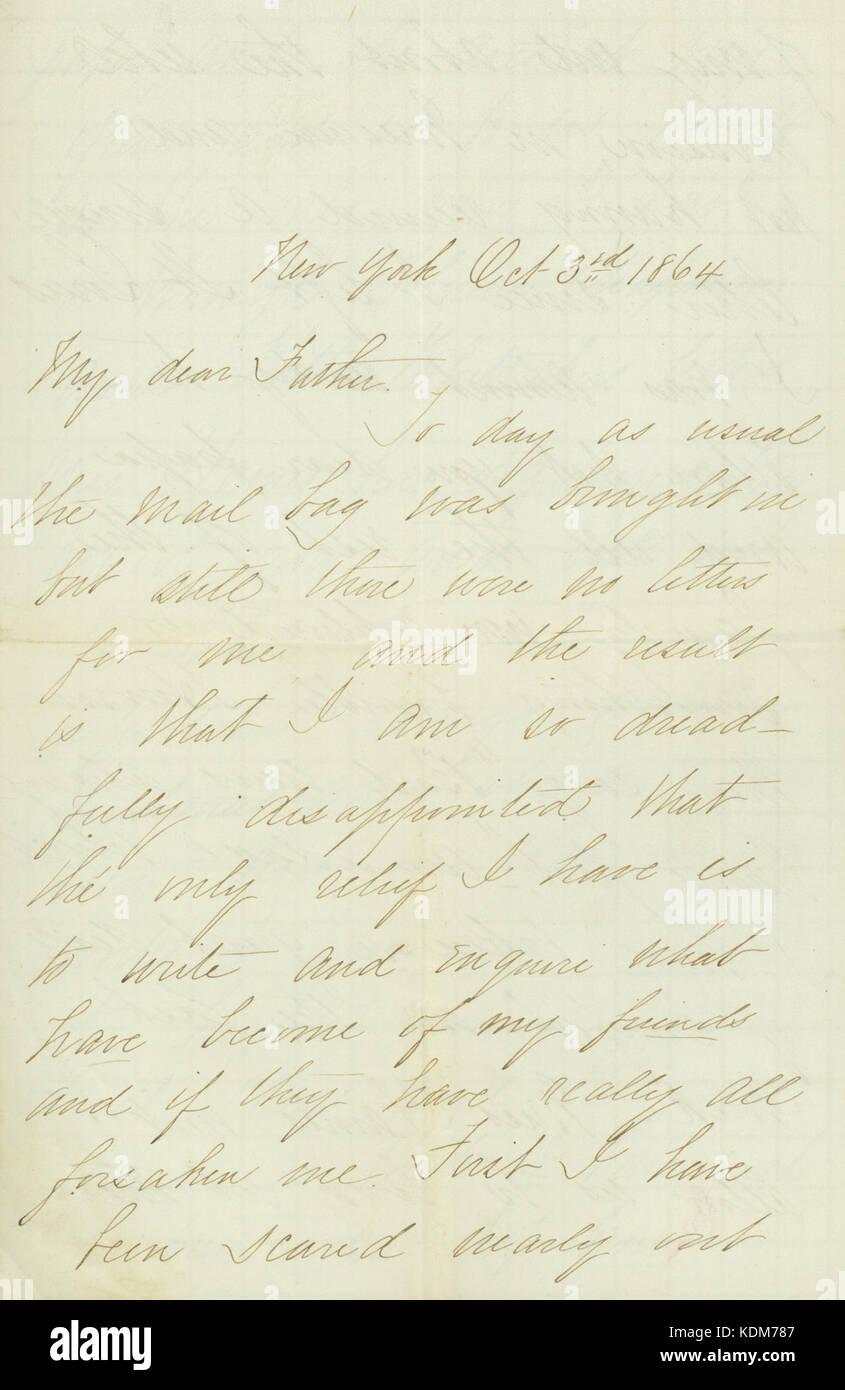 New York Oct 3rd 1864.
My dear Father.
To day as usual
the mail bag was brought in
but still there were no letters
for me and the result
is that I am so dread-
fully disappointed that
the only relief I have is
to write and enquire what
have become of my friends
and if they have really all
forsaken me. First I have
been scared nearly out
alamy
alamy stock photo
KDM787
www.alamy.com